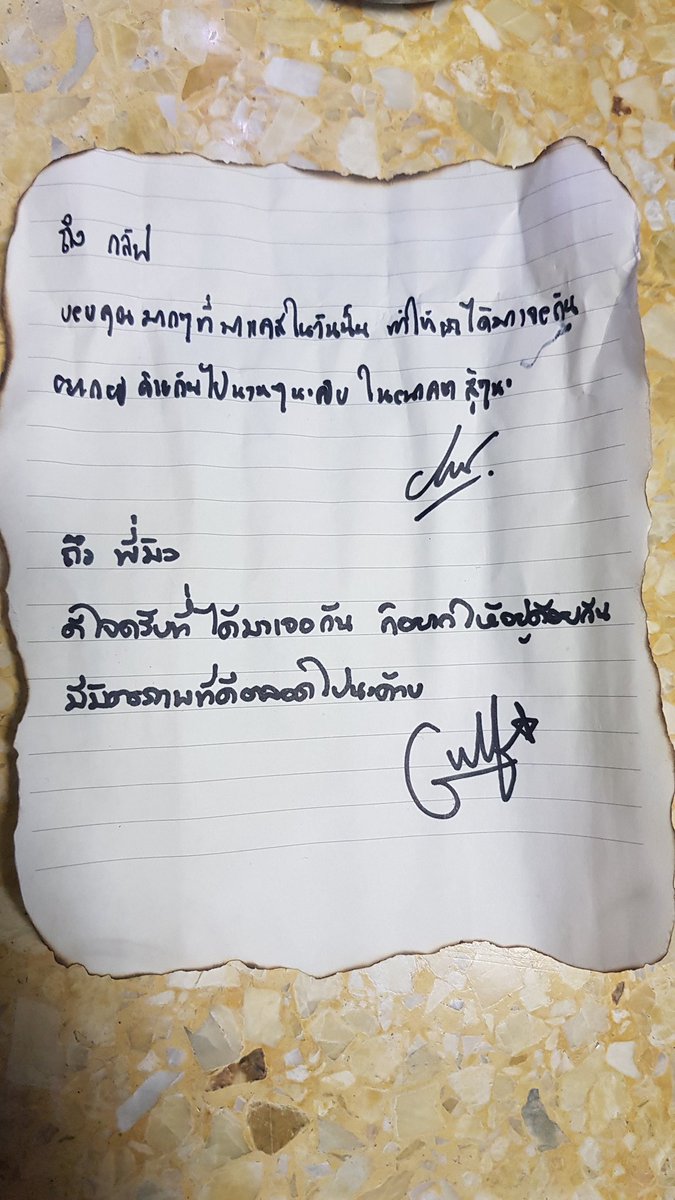 ถึง กลัฟ
ขอบคุณมากๆที่มาแคสในวันนั้น ทำให้เราได้มาเจอกัน
กันไปนานๆนะครับ ในอนาคต สู้ๆนะ
ถึง พี่มิว
ดีใจครับที่ได้มาเจอกัน ก็อยากให้อยู่ด้วยกัน
มีมิตรภาพที่ดีตลอดไปนะค้าบ
Gulf